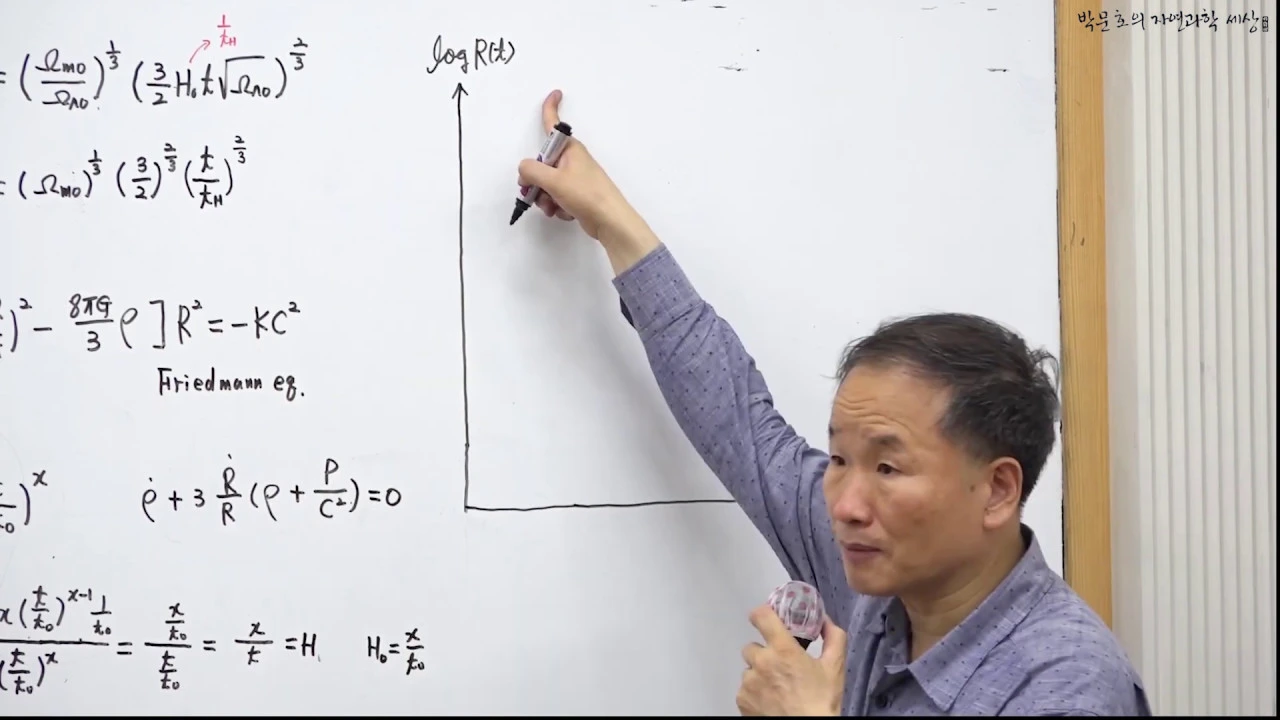 박문호의 자연과학 세상
1/t_H
= (Ω_m0/Ω_Λ0)^{1/3} (3/2 H_0 t √Ω_Λ0)^{2/3}
log R(t)
= (Ω_m0)^{1/3} (3/2)^{2/3} (t/t_H)^{2/3}
)^2 - 8πG/3 ρ ] R^2 = -KC^2
Friedmann eq.
)^x
ρ̇ + 3 Ṙ/R (ρ + P/C^2) = 0
x(t/t_0)^{x-1} 1/t_0 / (t/t_0)^x = x/t_0 / t/t_0 = x/t = H, H_0 = x/t_0